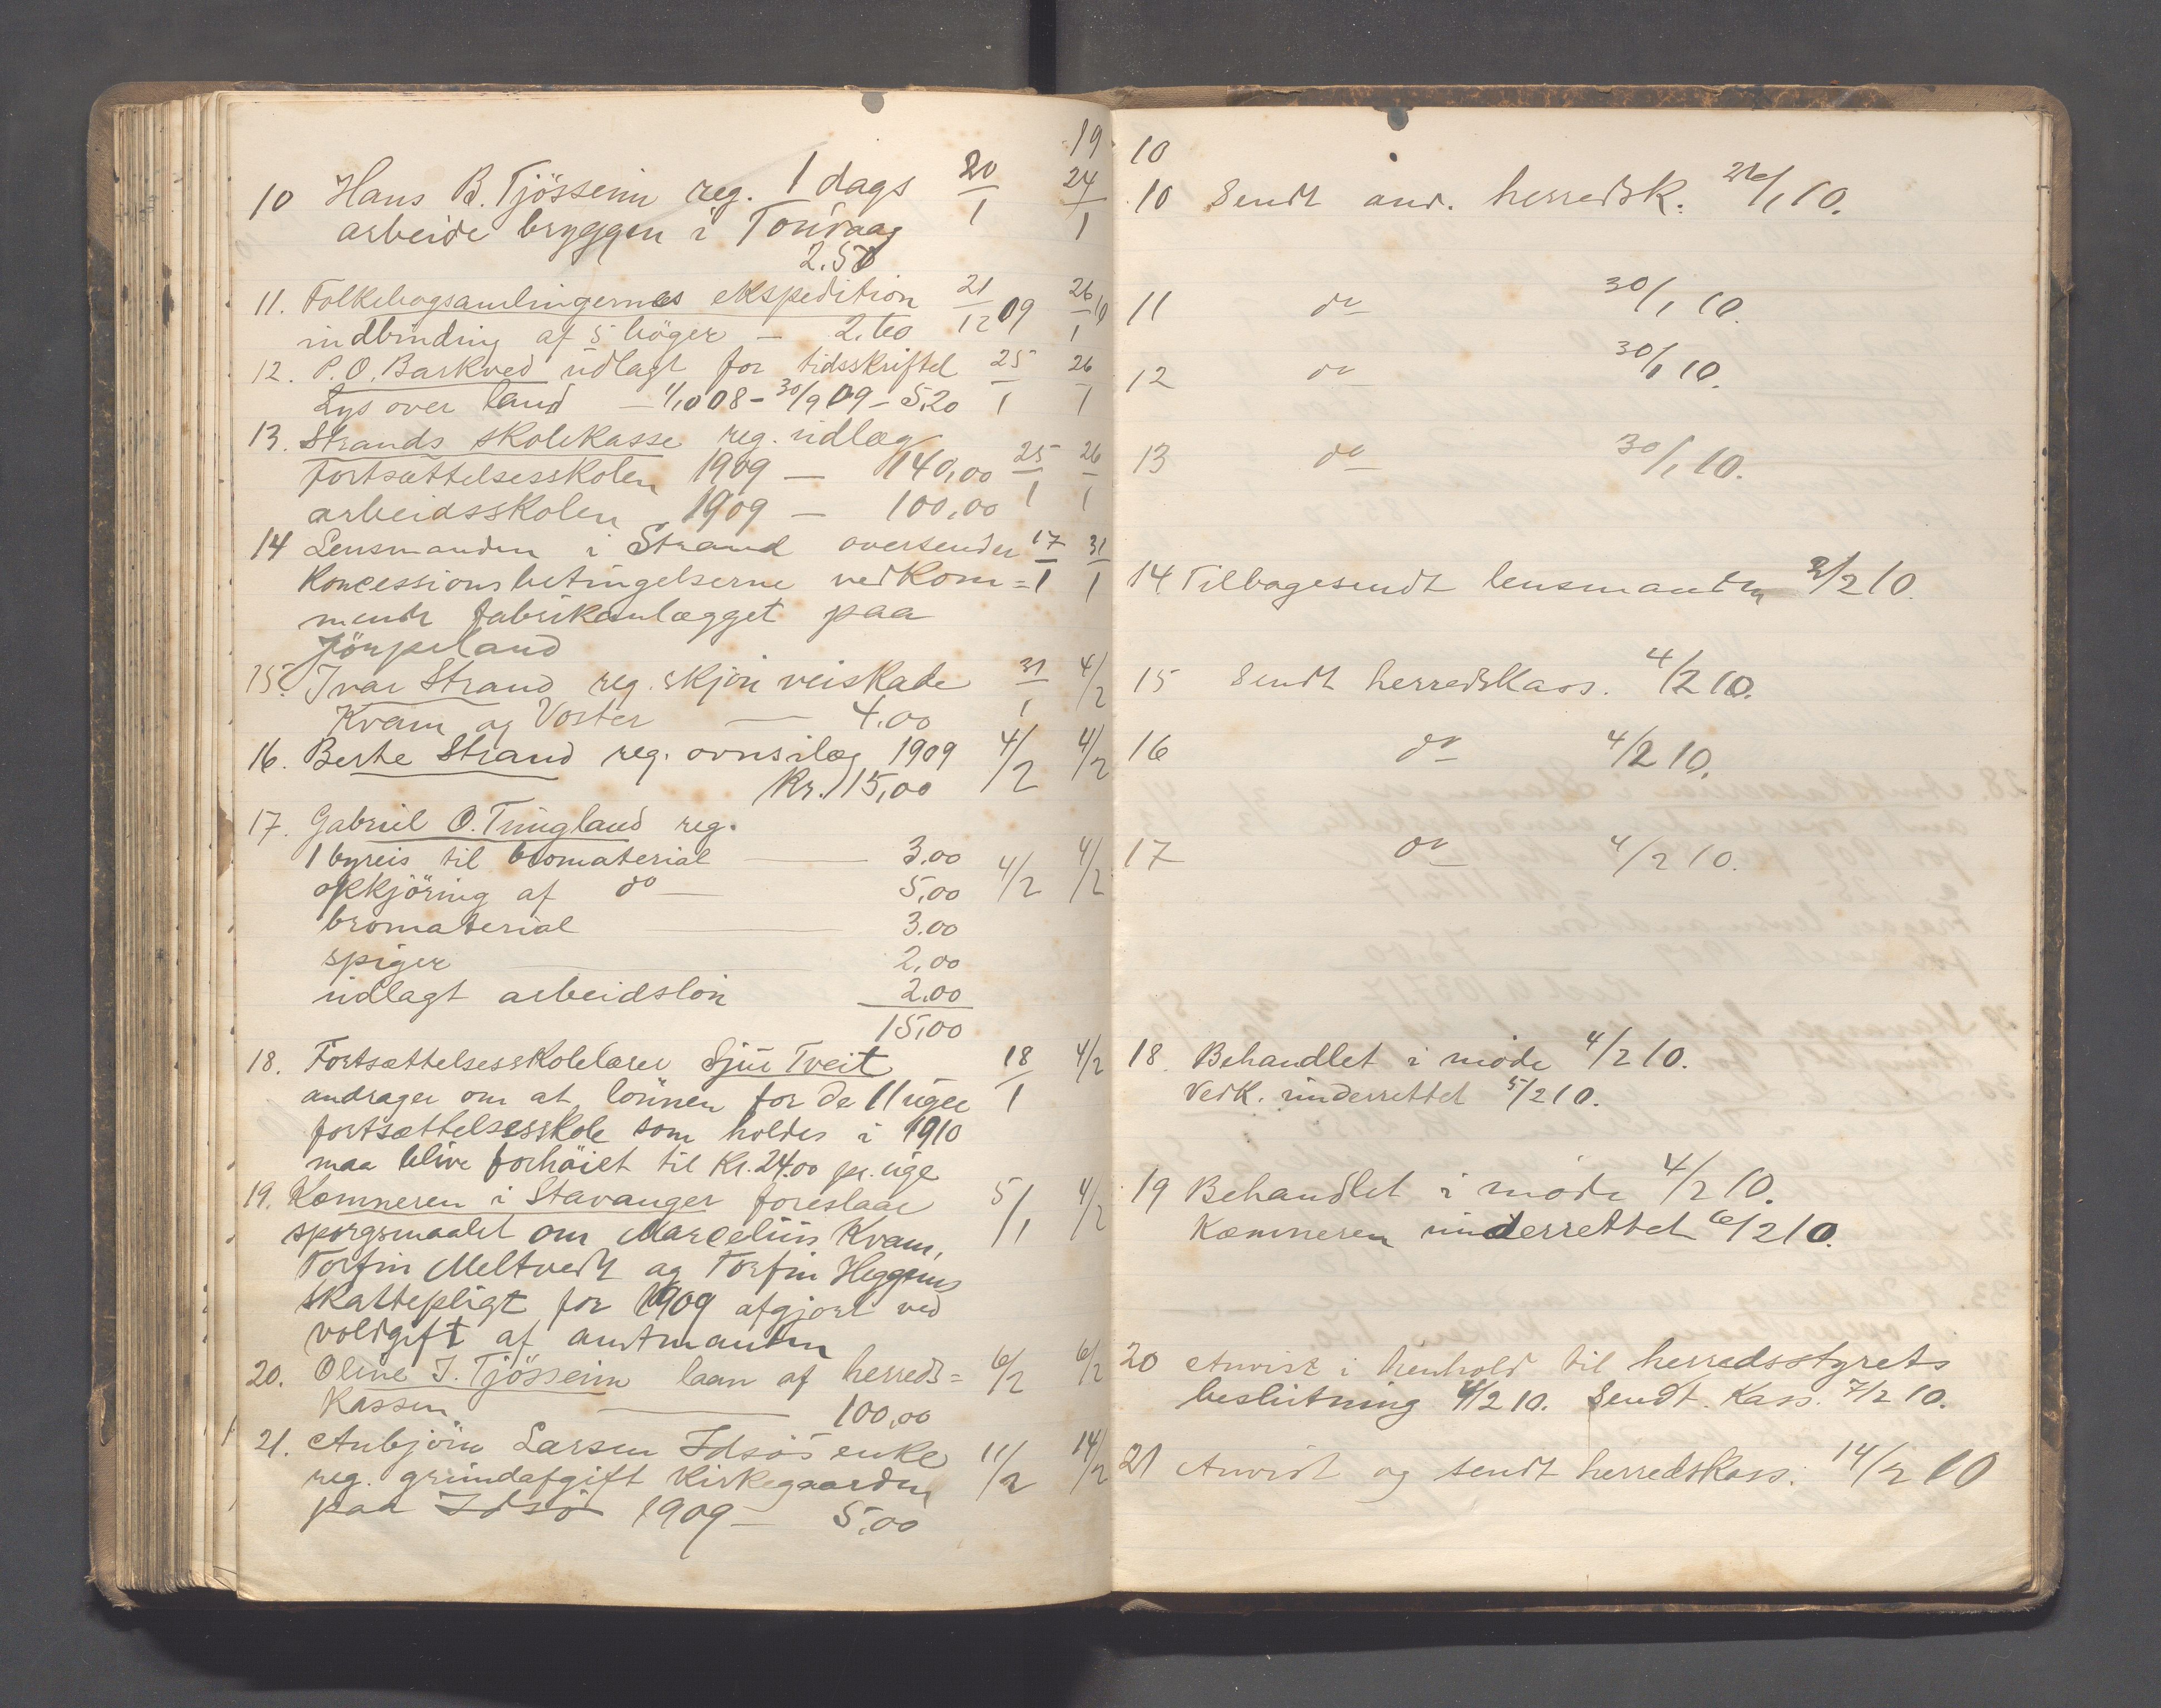 19
10 Hans B. Tjösseim reg. 1 dags 20/1 24/1
arbeide bryggen i Tou vaag
2.50
11. Folkebogsamlingernes ekspedition 21/12 09 26/1 10
indbinding af 5 böger — 2.60
12. P. O. Barkved udlagt for tidsskriftet 25/1 26/1
Lys over land — 1/10 08 - 30/9 09 - 5.20
13. Strands skolekasse reg. udlæg
Fortsættelsesskolen 1909 — 140,00 25/1 26/1
arbeidsskolen 1909 — 100,00
14 Lensmanden i Strand oversender 17/1 31/1
Koncessionsbetingelserne vedkom=
mende fabrikanlægget paa
Jörpeland
15. Ivar Strand reg. skjön veiskade 31/1 4/2
Kvam og Voster — 4.00
16. Berte Strand reg. ovnsilæg 1909 4/2 4/2
Kr. 15,00
17. Gabriel O. Tungland reg.
1 byreis til bromaterial — 3.00 4/2 4/2
opkjöring af do — 5,00
bromaterial — 3.00
spiger — 2,00
udlagt arbeidslön 2.00
15,00
18. Fortsættelsesskolelærer Sjur Tveit 18/1 4/2
andrager om at lönnen for de 11 uger
fortsættelsesskole som holdes i 1910
maa blive forhöiet til Kr. 24.00 pr. uge
19. Kæmneren i Stavanger foreslaar 5/1 4/2
spörgsmaalet om Marcelius Kvam,
Torfin Meltvedt og Torfin Heggems
skattepligt for 1909 afgjort ved
voldgift af amtmanden
20. Oline I. Tjösseim laan af herreds= 6/2 6/2
kassen — 100,00
21. Anbjörn Larsen Idsös enke 11/2 14/2
reg. grundafgift Kirkegaarden
paa Idsö 1909 — 5.00
10
10 Sendt anv. herredsk. 26/1 10.
11 do 30/1 10.
12 do 30/1 10.
13 do 30/1 10.
14 Tilbagesendt lensmanden 2/2 10.
15 Sendt herredskass. 4/2 10.
16 do 4/2 10.
17 do 4/2 10.
18. Behandlet i möde 4/2 10.
Vedk. underrettet 5/2 10.
19 Behandlet i möde 4/2 10.
Kæmneren underrettet 6/2 10.
20 Anvist i henhold til herredsstyrets
beslutning 4/2 10. Sendt. Kass. 7/2 10.
21 Anvist og sendt herredskass. 14/2 10